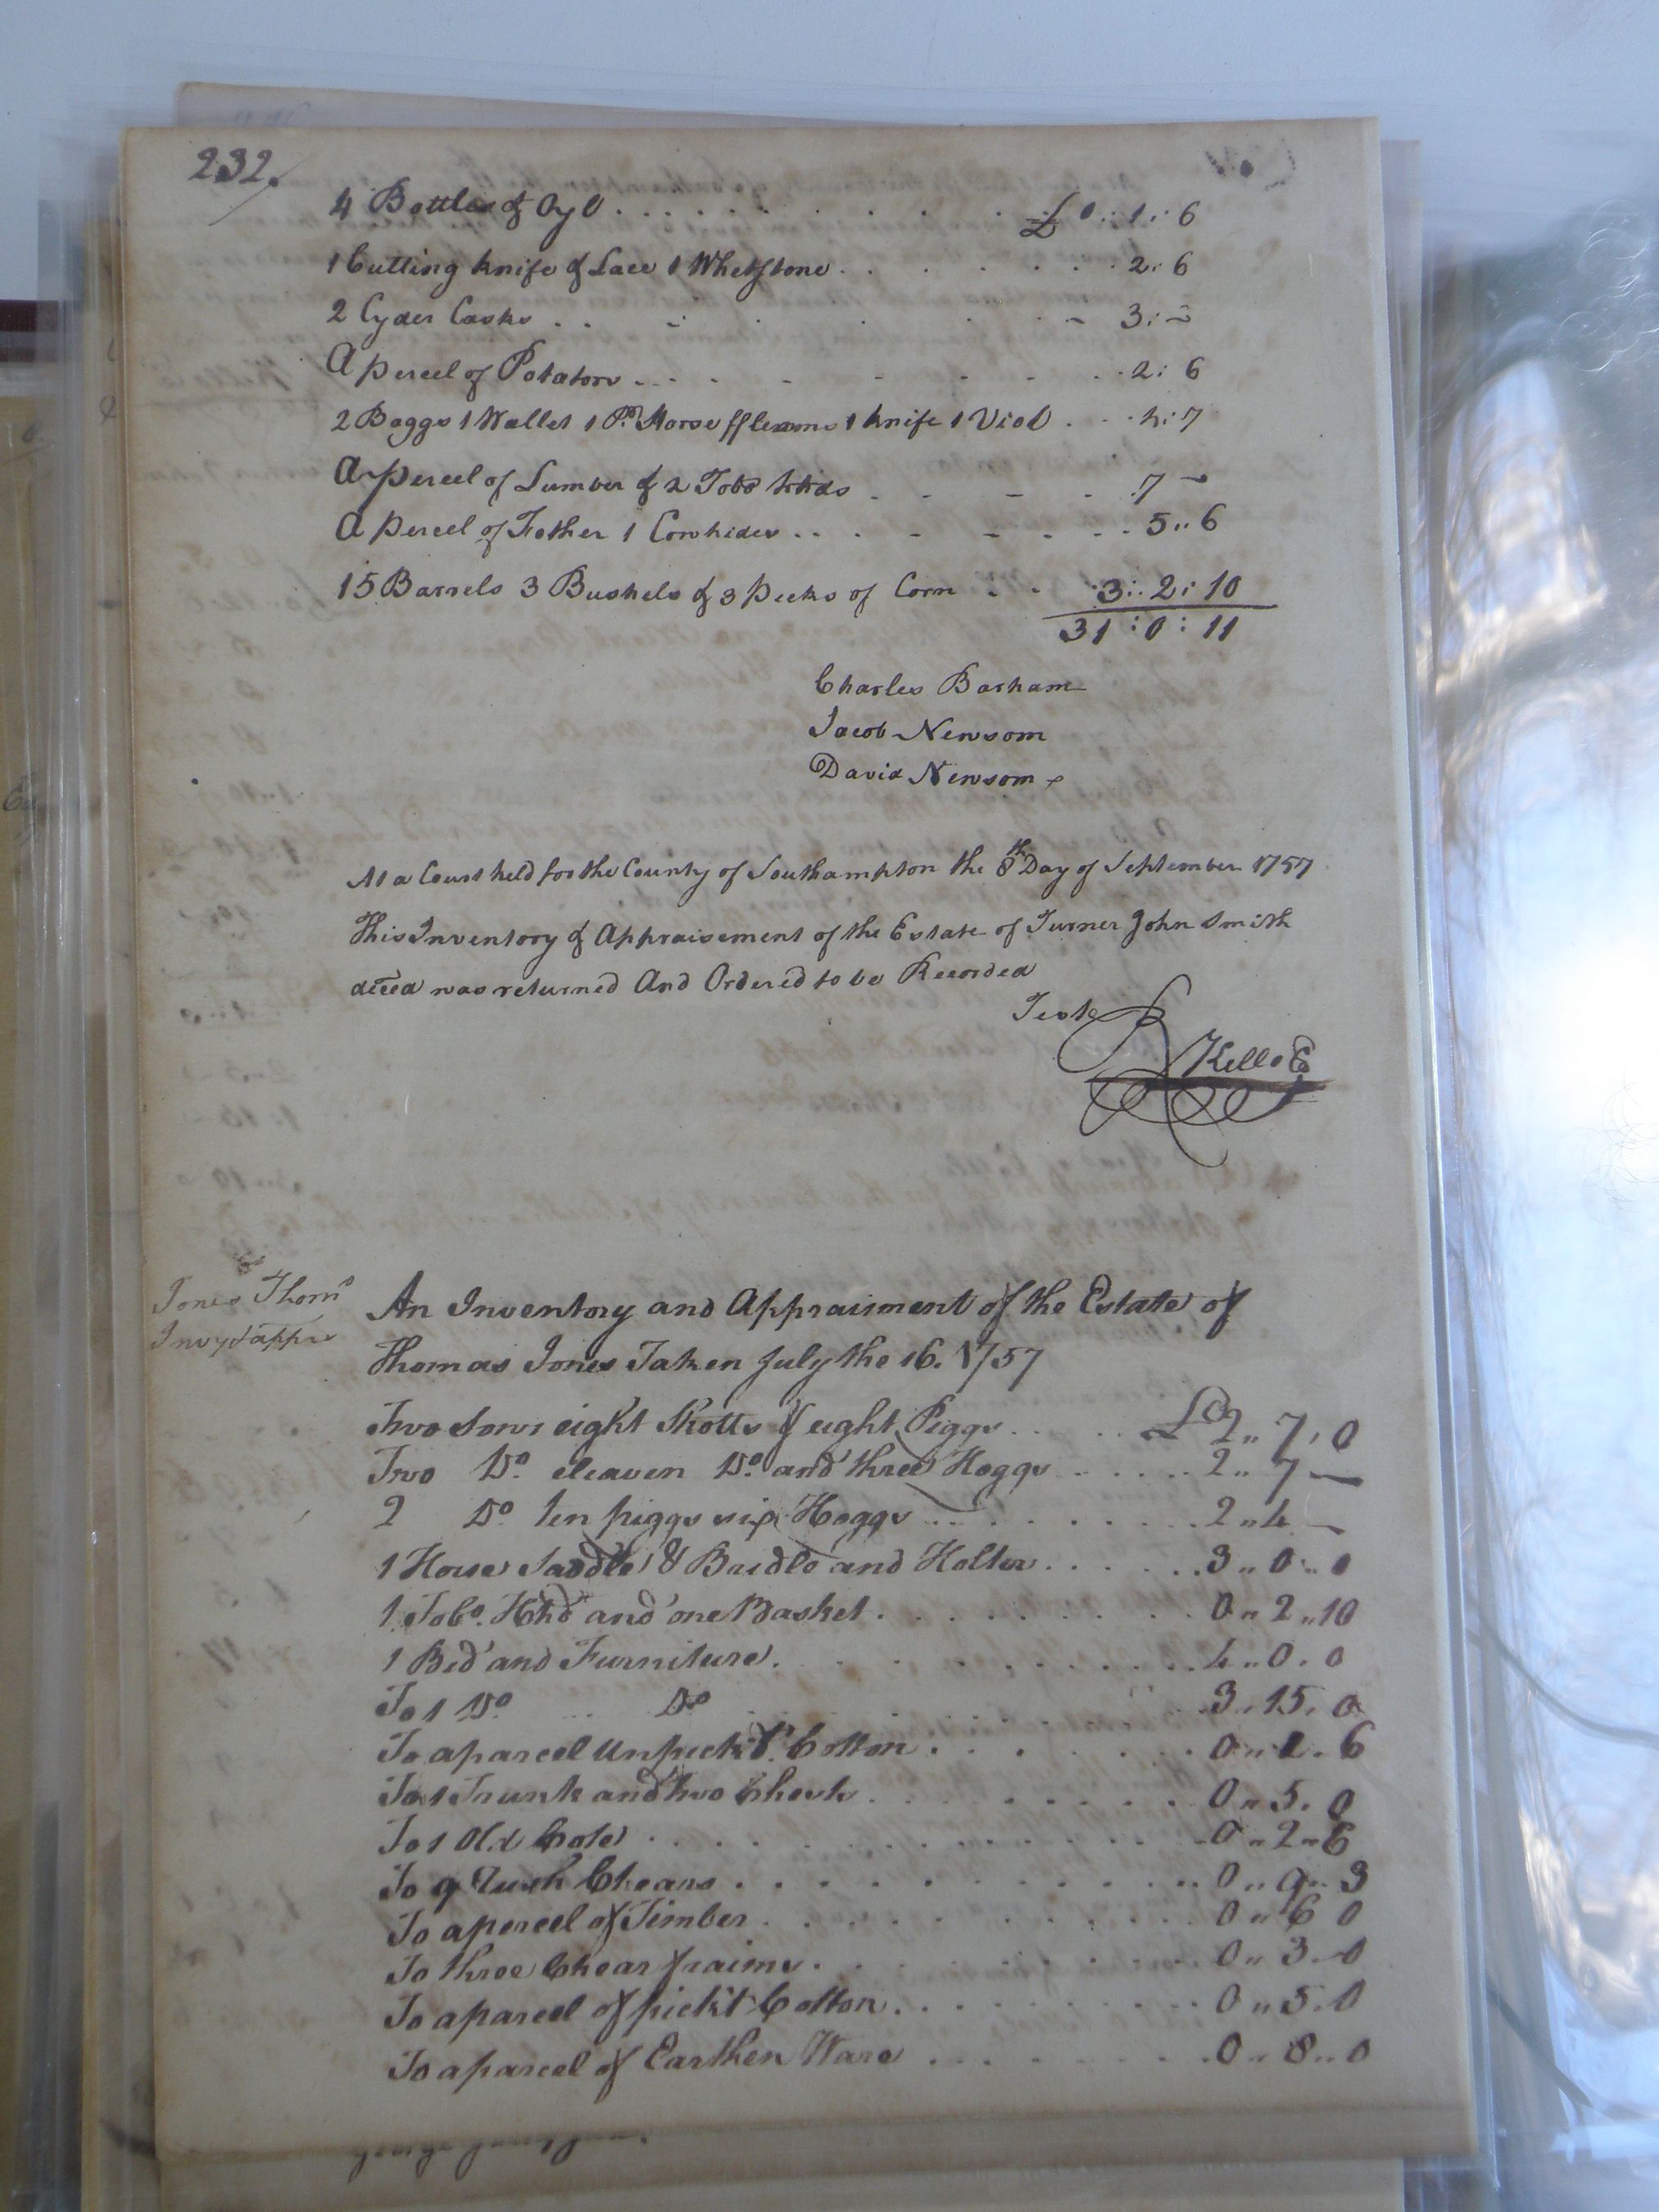 232.
4 Bottles & Oyl . . . . . . . . . . . £0 : 1 : 6
1 Cutting knife & Lace 1 Whetstone . . . . . . . 2 : 6
2 Cyder Casks . . - . . . - 3 : -
A percel of Potators . . . - - - - . . 2 : 6
2 Baggs 1 Wallet 1 Pr. Horse fflemms 1 knife 1 Viol . . . 4 : 7
A percel of Lumber & 2 Tobo hhds - - - - 7 -
A percel of Fother 1 Cowhides . . . - - - . . 5 .. 6
15 Barrels 3 Bushels & 3 pecks of Corn . . 3 : 2 : 10
31 : 0 : 11
Charles Barham
Jacob Newsom
David Newsom
At a Court held for the County of Southampton the 8th Day of September 1757
This Inventory & Appraisement of the Estate of Turner John Smith
deced was returned And Ordered to be Recorded
Teste
Kello
Jones Thoms
Invy & appr
An Inventory and Appraisment of the Estate of
Thomas Jones Taken July the 16. 1757
Two Sows eight Shotts & eight Piggs . . . . £ 2 .. 7 . 0
Two Do. eleaven Do. and three Hoggs . . . . . 2 .. 7 —
2 Do ten piggs six Hoggs . . . . . . . . . 2 .. 4 —
1 Horse Saddle & Bridle and Holter . . . . . . 3 .. 0 .. 0
1 Tobo. Hhd and one Basket . . . . . . . . . 0 .. 2 .. 10
1 Bed and Furniture . . . . . . . . . . 4 .. 0 . 0
To 1 Do. Do . . . . . . . 3 . 15 . 0
To a parcel unpickt Cotton . . . . . . 0 .. . 6
To 1 Trunk and two Chests . . . . . . . . 0 .. 5 . 0
To 1 Old Cote . . . . . . . . . . . . 0 .. 2 .. 6
To 9 Rush Chears . . . . . . . . . . . 0 .. 9 .. 3
To a percel of Timber . . . . . . . . . . 0 .. 6 0
To three Chear fraims . . . . . . . . . 0 .. 3 . 0
To a parcel of pickt Cotton . . . . . . . . 0 .. 5 . 0
To a parcel of Earthen Ware . . . . . . . 0 .. 8 .. 0